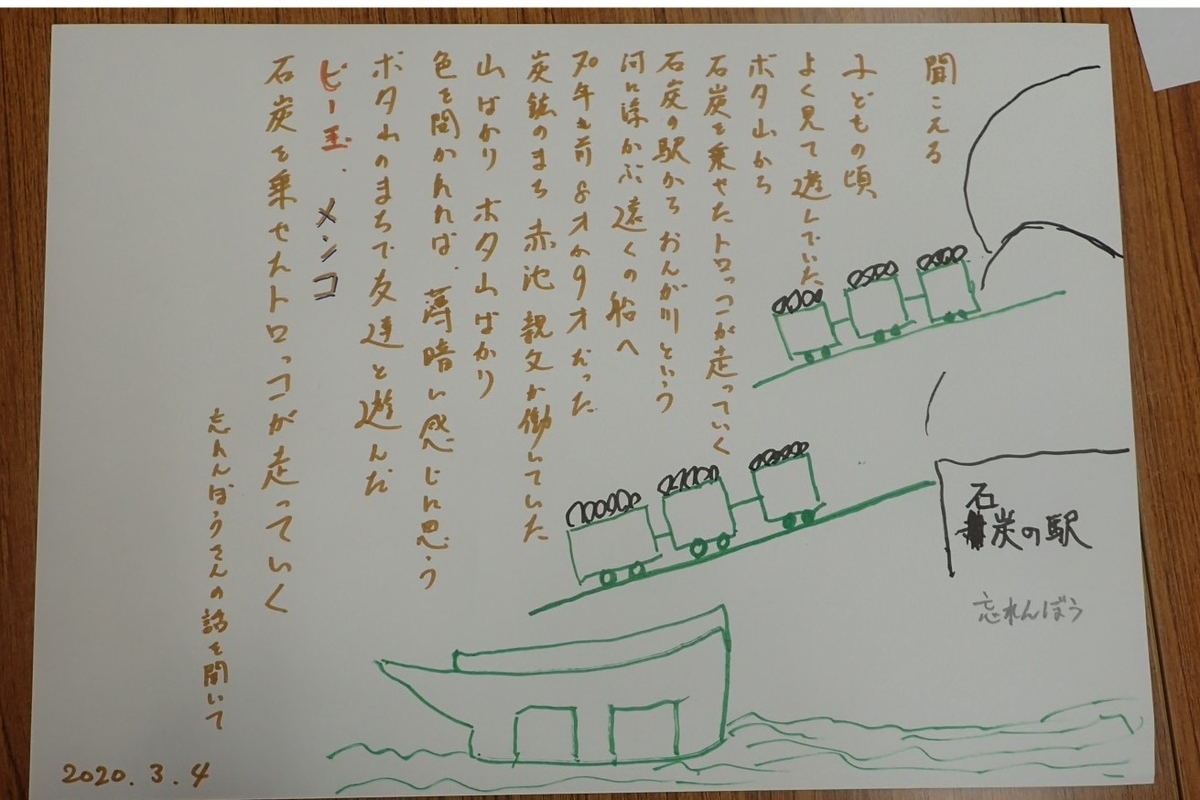 聞こえる
子どもの頃
よく見て遊していた
ボタ山から
石炭を乗せたトロッコが走っていく
石炭の駅から おんが川という
河に浮かぶ遠くの船へ
70年も前 8才か9才だった
炭鉱のまち 赤池 親父が働していた
山ばかり ボタ山ばかり
色を聞かれれば、薄暗い感じに思う
ボタ山のまちで友達と遊んだ
ビー玉、メンコ
石炭を乗せたトロッコが走っていく
忘れんぼうさんの話を聞いて
2020.3.4
石炭の駅
忘れんぼう